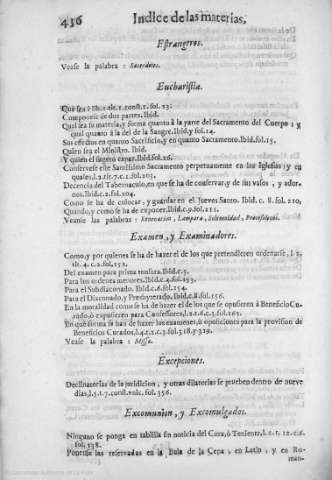 436 Indice de las materias,
Estrangeros.
Vease la palabra: Sacerdotes.
Eucharistia.
Que sea? lib. 1. tit. 1. const. 1. fol. 23:
Componese de dos partes. Ibid.
Qual sea su materia, y forma quanto à la parte del Sacramento del Cuerpo; y
qual quanto à la del de la Sangre. Ibid. y fol. 14.
Sus efectos en quanto Sacrificio, y en quanto Sacramento. Ibid. fol. 15.
Quien sea el Ministro. Ibid.
Y quien el sugeto capaz. Ibid. fol. 16.
Conservese este Santissimo Sacramento perpetuamente en las Iglesias; y en
quales, l. 3. tit. 7. c. 1. fol. 203.
Decencia del Tabernaculo, en que se ha de conservar, y de sus vasos, y ador-
nos. Ibid. c. 2. fol. 204.
Como se ha de colocar, y guardar en el Jueves Santo. Ibid. c. 8. fol. 210,
Quando, y como se ha de exponer. Ibid. c. 9. fol. 211.
Veanse las palabras: Veneracion, Lampara, Solemnidad, Processional.
Examen, y Examinadores.
Como, y por quienes se ha de hazer el de los que pretendieren ordenarse, l. 1.
tit. 4. c. 2. fol. 152.
Del examen para prima tonsura. Ibid. c. 3.
Para los ordenes menores. Ibid. c. 4. fol. 153.
Para el Subdiaconado. Ibid. c. 6. fol. 154.
Para el Diaconado, y Presbyterado. Ibid. c. 8. fol. 156.
En la moralidad como se ha de hazer el de los que se opusieren à Beneficio Cu-
rado, ò expusieren para Confessores, l. 2. t. 6. c. 3. fol. 163.
En què forma se han de hazer los examenes, ò oposiciones para la provision de
Beneficios Curados, l. 4. t. 2. c. 3. fol. 318. y 319.
Vease la palabra: Missa.
Excepciones.
Declinatorias de la jurisdicion, y otras dilatorias se prueben dentro de nueve
dias, l. 5. t. 7. const. unic. fol. 356.
Excomunion, y Excomulgados.
Ninguno se ponga en tablilla sin noticia del Cura, ò Teniente, l. 1. t. 12. c. 6.
fol. 538.
Pontifie las reservadas en la Bula de la Cena, en Latin, y en Ro-
man-